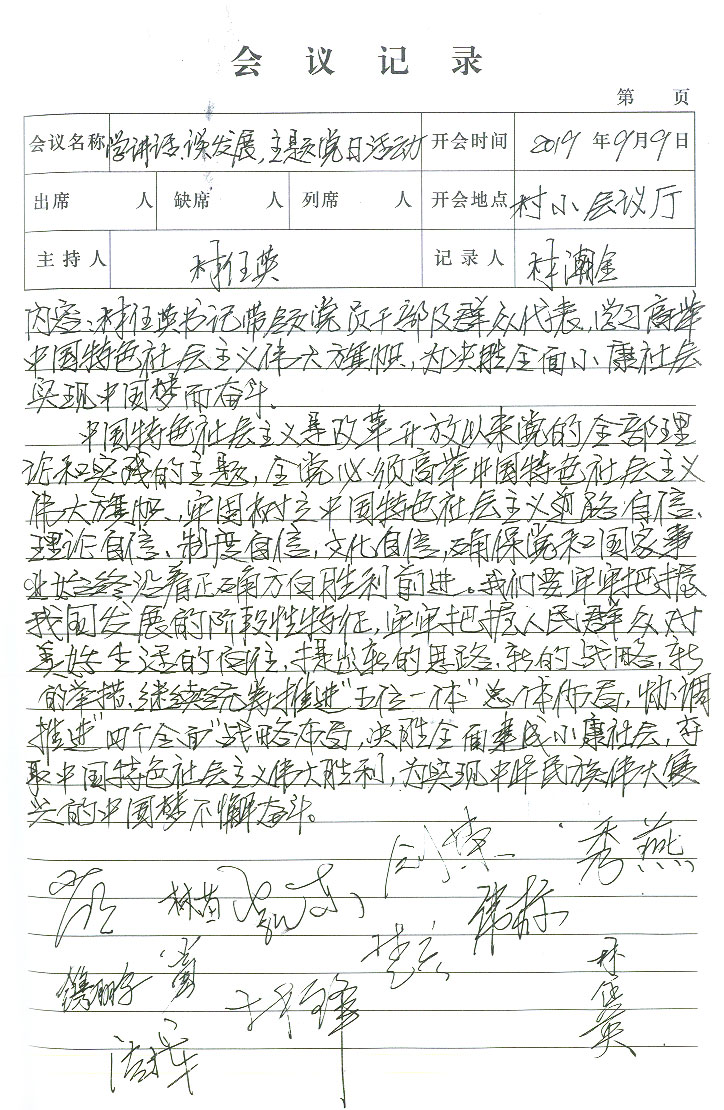 会议记录
第 页
会议名称 学讲话、谈发展,主题党日活动 开会时间 2019年9月9日
出席 人 缺席 人 列席 人 开会地点 村小会议厅
主持人 村任英 记录人 村潮金
内容:村任英书记带领党员干部及群众代表,学习高举
中国特色社会主义伟大旗帜,为决胜全面小康社会
实现中国梦而奋斗。
中国特色社会主义是改革开放以来党的全部理
论和实践的主题,全党必须高举中国特色社会主义
伟大旗帜,牢固树立中国特色社会主义道路自信、
理论自信、制度自信,文化自信,确保党和国家事
业始终沿着正确方向胜利前进。我们要牢牢把握
我国发展的阶段性特征,牢牢把握人民群众对
美好生活的向往,提出新的思路,新的战略,新
的举措,继续统筹推进"五位一体"总体布局,协调
推进"四个全面"战略布局,决胜全面建成小康社会,夺
取中国特色社会主义伟大胜利,为实现中华民族伟大复
兴的中国梦不懈奋斗。
秀燕
林苗